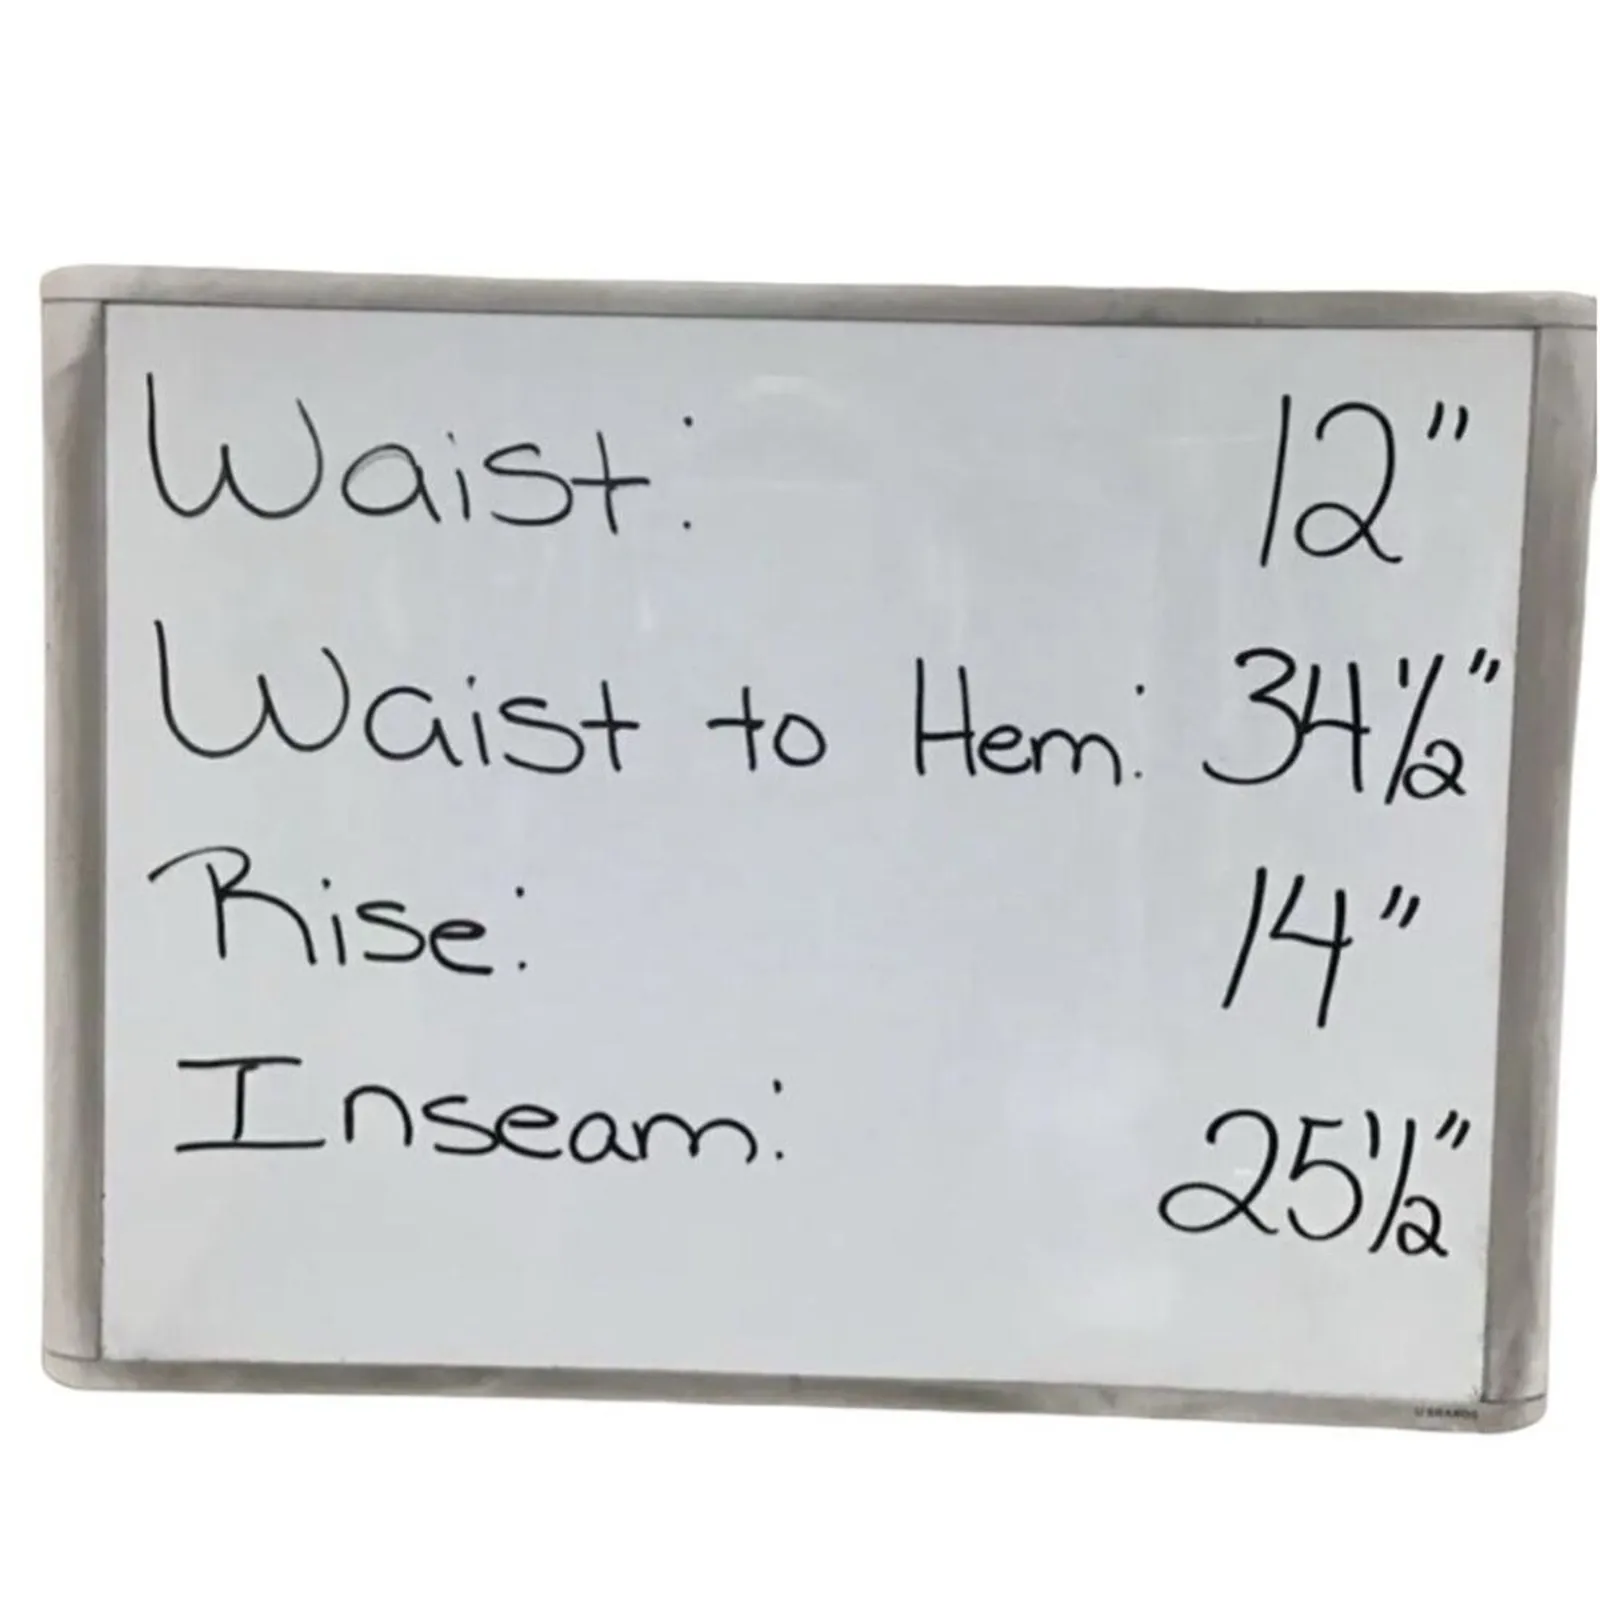 Waist: 12"
Waist to Hem: 34 1/2"
Rise: 14"
Inseam: 25 1/2"
U BRANDS